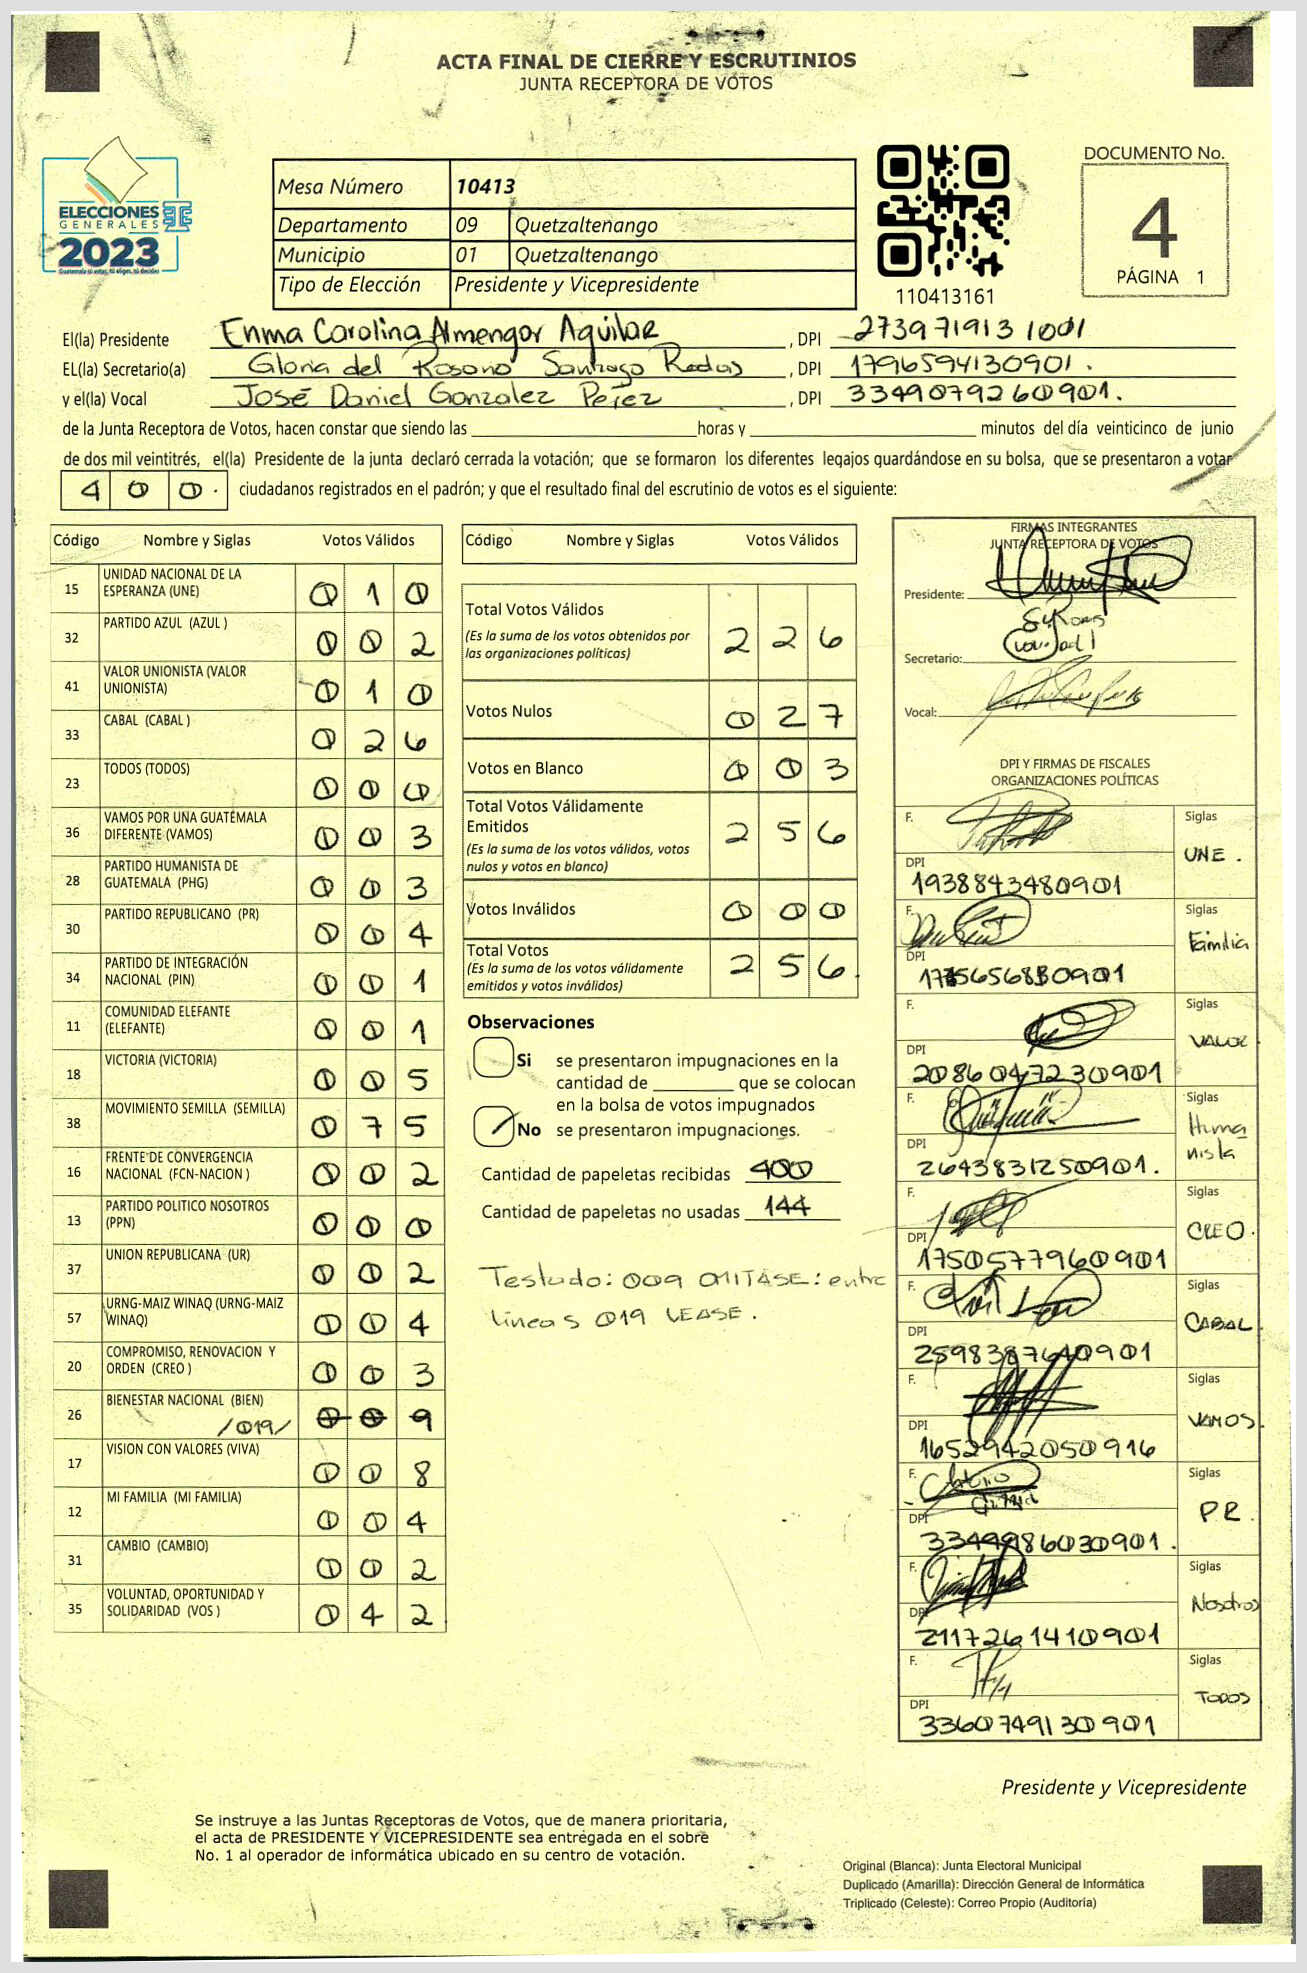 ACTA FINAL DE CIERRE Y ESCRUTINIOS
JUNTA RECEPTORA DE VOTOS
ELECCIONES
GENERALES
2023
Mesa Número 10413
Departamento 09 Quetzaltenango
Municipio 01 Quetzaltenango
Tipo de Elección Presidente y Vicepresidente
110413161
DOCUMENTO No.
4
PÁGINA 1
El(la) Presidente Enma Carolina Almengor Aguilar, DPI 2739719131001
EL(la) Secretario(a) Gloria del Rosario Santiago Rodas, DPI 1796594130901.
y el(la) Vocal José Daniel Gonzalez Pérez, DPI 3349079260901.
de la Junta Receptora de Votos, hacen constar que siendo las horas y minutos del día veinticinco de junio
de dos mil veintitrés, el(la) Presidente de la junta declaró cerrada la votación; que se formaron los diferentes legajos guardándose en su bolsa, que se presentaron a votar
400. ciudadanos registrados en el padrón; y que el resultado final del escrutinio de votos es el siguiente:
Código Nombre y Siglas Votos Válidos
15 UNIDAD NACIONAL DE LA ESPERANZA (UNE) 0 1 0
32 PARTIDO AZUL (AZUL ) 0 0 2
41 VALOR UNIONISTA (VALOR UNIONISTA) 0 1 0
33 CABAL (CABAL ) 0 2 6
23 TODOS (TODOS) 0 0 0
36 VAMOS POR UNA GUATEMALA DIFERENTE (VAMOS) 0 0 3
28 PARTIDO HUMANISTA DE GUATEMALA (PHG) 0 0 3
30 PARTIDO REPUBLICANO (PR) 0 0 4
34 PARTIDO DE INTEGRACIÓN NACIONAL (PIN) 0 0 1
11 COMUNIDAD ELEFANTE (ELEFANTE) 0 0 1
18 VICTORIA (VICTORIA) 0 0 5
38 MOVIMIENTO SEMILLA (SEMILLA) 0 7 5
16 FRENTE DE CONVERGENCIA NACIONAL (FCN-NACION ) 0 0 2
13 PARTIDO POLITICO NOSOTROS (PPN) 0 0 0
37 UNION REPUBLICANA (UR) 0 0 2
57 URNG-MAIZ WINAQ (URNG-MAIZ WINAQ) 0 0 4
20 COMPROMISO, RENOVACION Y ORDEN (CREO ) 0 0 3
26 BIENESTAR NACIONAL (BIEN) /019/ 0 0 9
17 VISION CON VALORES (VIVA) 0 0 8
12 MI FAMILIA (MI FAMILIA) 0 0 4
31 CAMBIO (CAMBIO) 0 0 2
35 VOLUNTAD, OPORTUNIDAD Y SOLIDARIDAD (VOS ) 0 4 2
Código Nombre y Siglas Votos Válidos
Total Votos Válidos 2 2 6
(Es la suma de los votos obtenidos por
las organizaciones políticas)
Votos Nulos 0 2 7
Votos en Blanco 0 0 3
Total Votos Válidamente
Emitidos 2 5 6
(Es la suma de los votos válidos, votos
nulos y votos en blanco)
Votos Inválidos 0 0 0
Total Votos 2 5 6.
(Es la suma de los votos válidamente
emitidos y votos inválidos)
Observaciones
Si se presentaron impugnaciones en la
cantidad de que se colocan
en la bolsa de votos impugnados
No se presentaron impugnaciones.
Cantidad de papeletas recibidas 400
Cantidad de papeletas no usadas 144
Testado: 009 OMITASE: entre
lineas 019 LEASE.
FIRMAS INTEGRANTES
JUNTA RECEPTORA DE VOTOS
Presidente:
Secretario:
Vocal:
DPI Y FIRMAS DE FISCALES
ORGANIZACIONES POLÍTICAS
F. Siglas UNE.
DPI 1938843480901
F. Siglas Familia
DPI
F. Siglas VALOR
DPI 2086047230901
F. Siglas Humanista
DPI 2643831250901.
F. Siglas CREO.
DPI 1750577960901
F. Siglas CABAL
DPI 2598387640901
F. Siglas VAMOS.
DPI 1652942050916
F. Siglas PR.
DPI 3349986030901.
F. Siglas Nosotros
DPI 2117261410901
F. Siglas TODOS
DPI 3360749130901
Presidente y Vicepresidente
Se instruye a las Juntas Receptoras de Votos, que de manera prioritaria,
el acta de PRESIDENTE Y VICEPRESIDENTE sea entregada en el sobre
No. 1 al operador de informática ubicado en su centro de votación.
Original (Blanca): Junta Electoral Municipal
Duplicado (Amarilla): Dirección General de Informática
Triplicado (Celeste): Correo Propio (Auditoría)